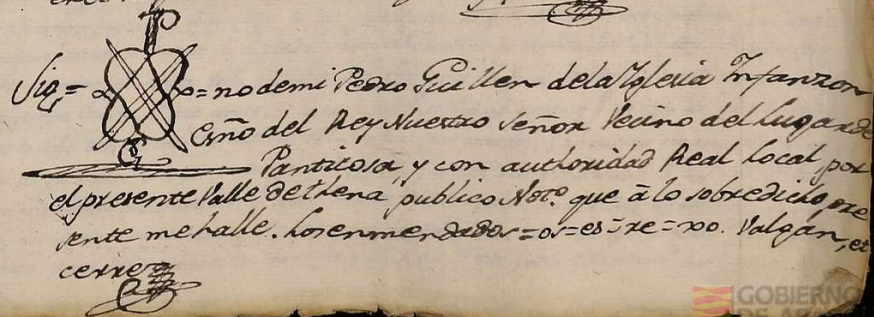 Sig= =no de mi Pedro Guillen de la Iglesia Infanzon
Esño del Rey Nuestro Señor Vecino del Lugar de
Panticosa y con authoridad Real local por
el presente Valle de thena publico Notº. que â lo sobredicho pre
sente me halle. Los enmendados=os=es=re=xo. Valgan, et
cerre
GOBIERNO
DE ARAGON